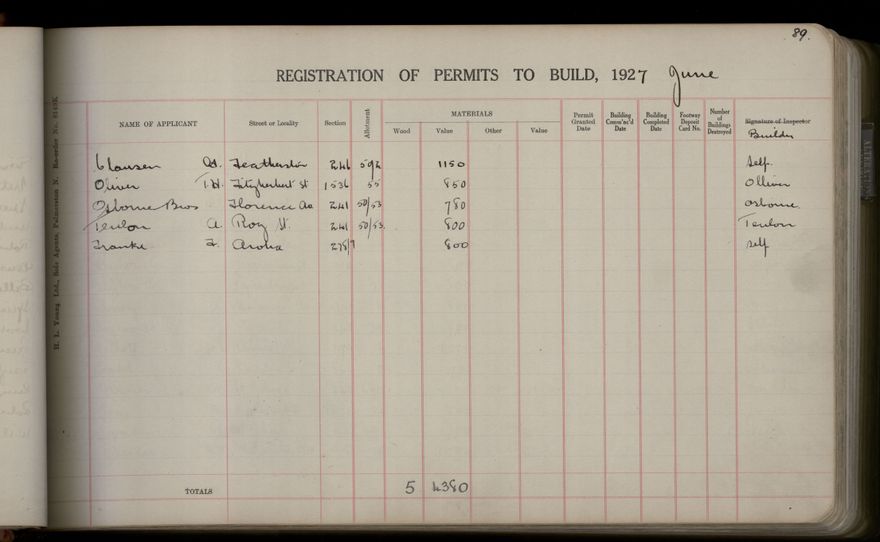 89.
REGISTRATION OF PERMITS TO BUILD, 1927 June
NAME OF APPLICANT Street or Locality Section Allotment MATERIALS Wood Value Other Value Permit Granted Date Building Comm'nc'd Date Building Completed Date Footway Deposit Card No. Number of Buildings Destroyed Signature of Inspector Builder
Clausen 246 592 1150 Self.
Oliver T.H. Fitzherbert St 1536 55 850 Olliver
Osborne Bros Florence Av 241 50/53 780 Osborne
A. Roy St. 241 50/53. 800
Franke F. Aroha 800 Self
TOTALS 5 4380
H. L. Young Ltd., Sole Agents, Palmerston N. Re-order No.